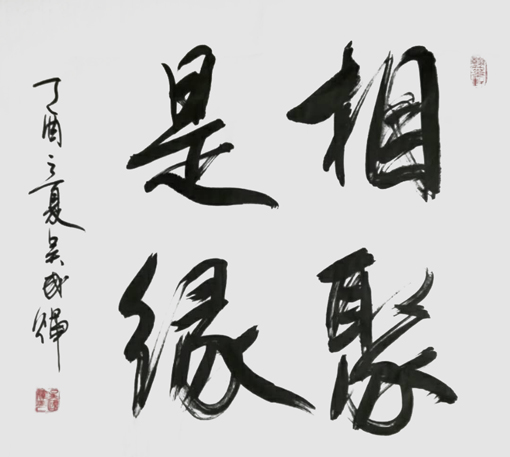 相聚
是缘
丁酉之夏吴成辉